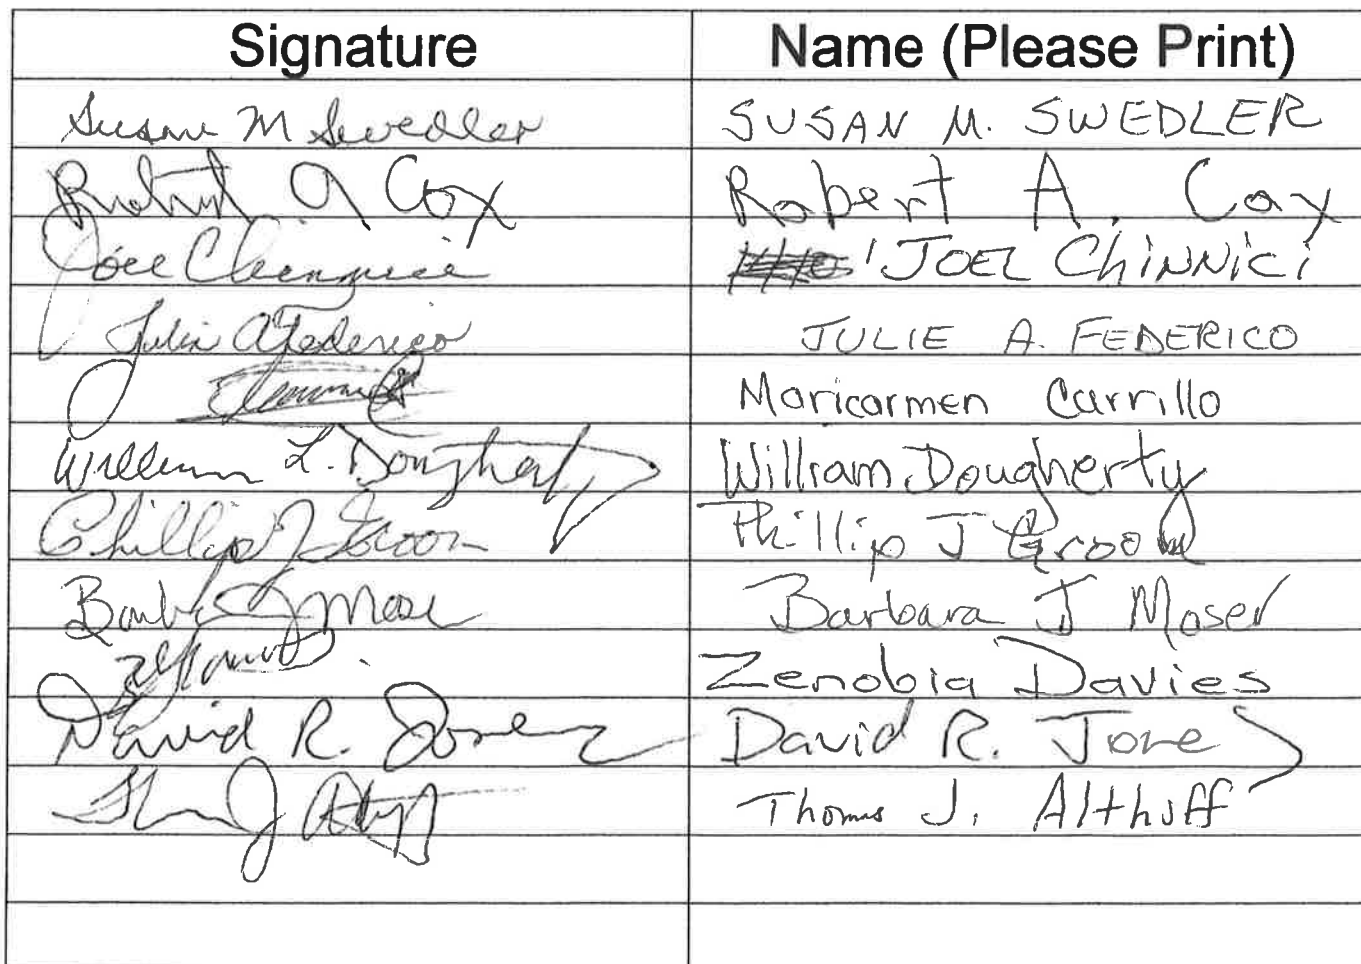 Signature Name (Please Print)
Susan M Swedler SUSAN M. SWEDLER
Robert A Cox Robert A. Cox
Joel Chinnici JOEL CHINNICI
Julie A Federico JULIE A. FEDERICO
Maricarmen Carrillo
William L. Dougherty William Dougherty
Phillip J Groom Phillip J Groom
Barbara J Moser Barbara J Moser
Zenobia Davies
David R. Jones David R. Jones
Thomas J. Althoff